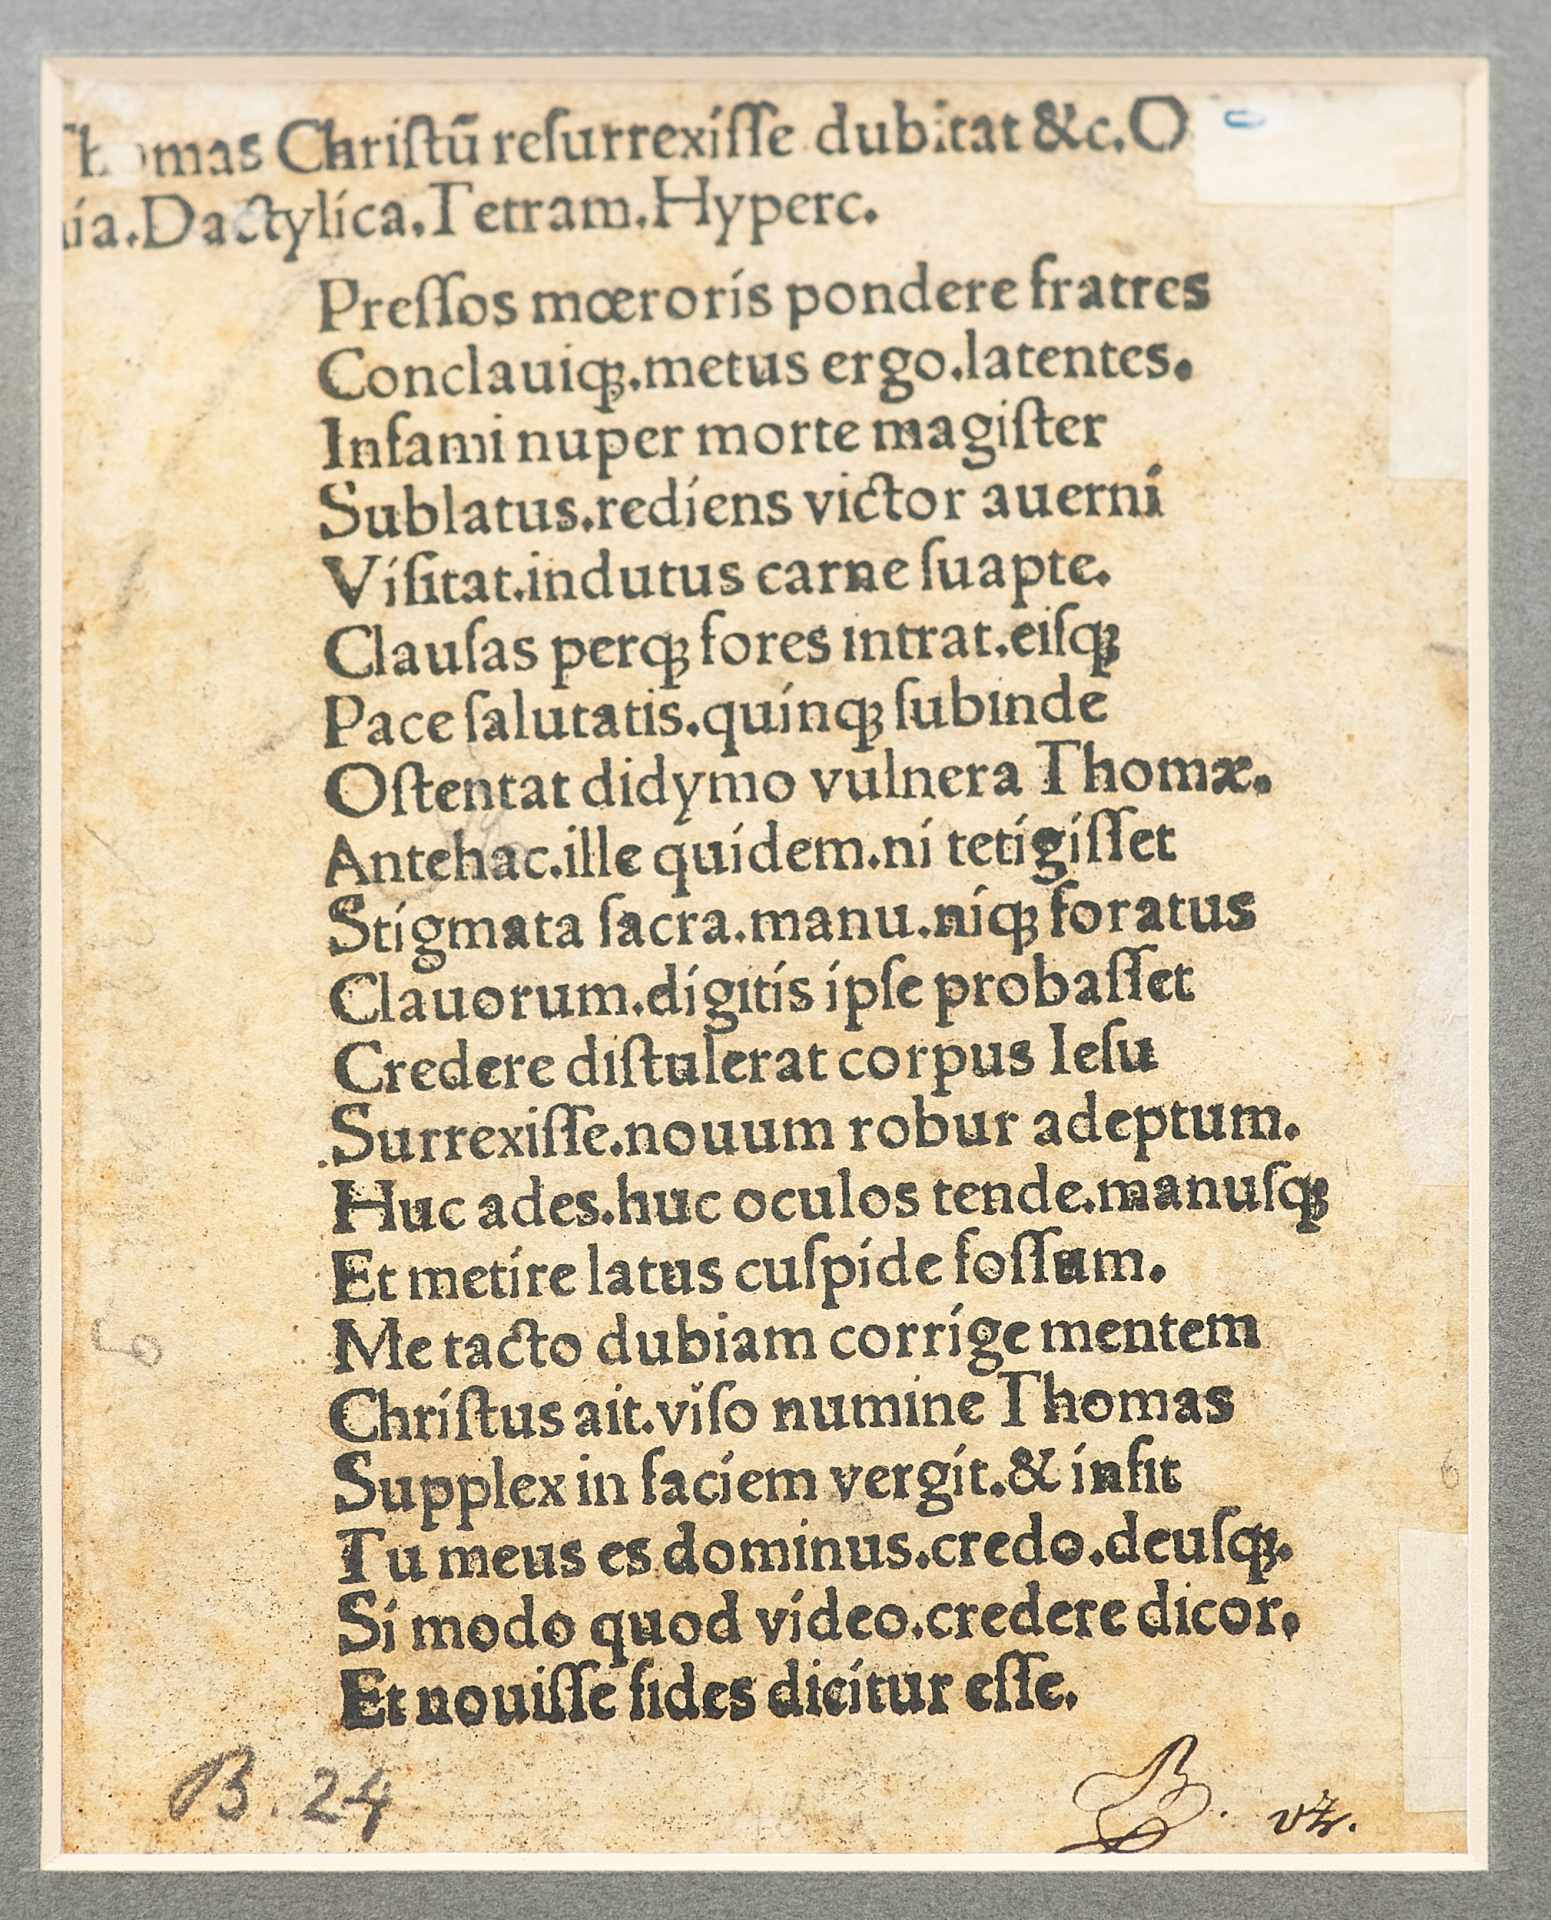 Thomas Chriſtū reſurrexiſſe dubitat &c. O
ia. Dactylica. Tetram. Hyperc.
Preſſos mœroris pondere fratres
Conclauiqꝫ. metus ergo. latentes.
Infami nuper morte magiſter
Sublatus. rediens victor auerni
Viſitat. indutus carne ſuapte.
Clauſas perqꝫ fores intrat. eiſqꝫ
Pace ſalutatis. quinqꝫ ſubinde
Oſtentat didymo vulnera Thomæ.
Antehac. ille quidem. ni tetigiſſet
Stigmata ſacra. manu. niqꝫ foratus
Clauorum. digitis ipſe probaſſet
Credere diſtulerat corpus Ieſu
Surrexiſſe. nouum robur adeptum.
Huc ades. huc oculos tende. manuſqꝫ
Et metire latus cuſpide foſſum.
Me tacto dubiam corrige mentem
Chriſtus ait. viſo numine Thomas
Supplex in faciem vergit. & infit
Tu meus es dominus. credo. deuſqꝫ.
Si modo quod video. credere dicor.
Et nouiſſe fides dicitur eſſe.
B. 24